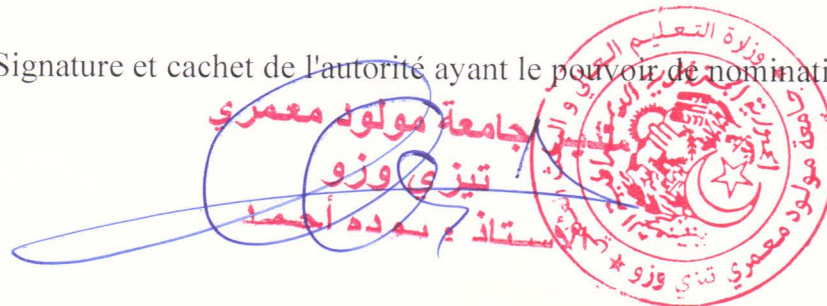 Signature et cachet de l'autorité ayant le pouvoir de nominati
مدير جامعة مولود معمري
تيزي وزو
الأستاذ : بوده أحمد
وزارة التعليم العالي و البحث العلمي
جامعة مولود معمري تيزي وزو